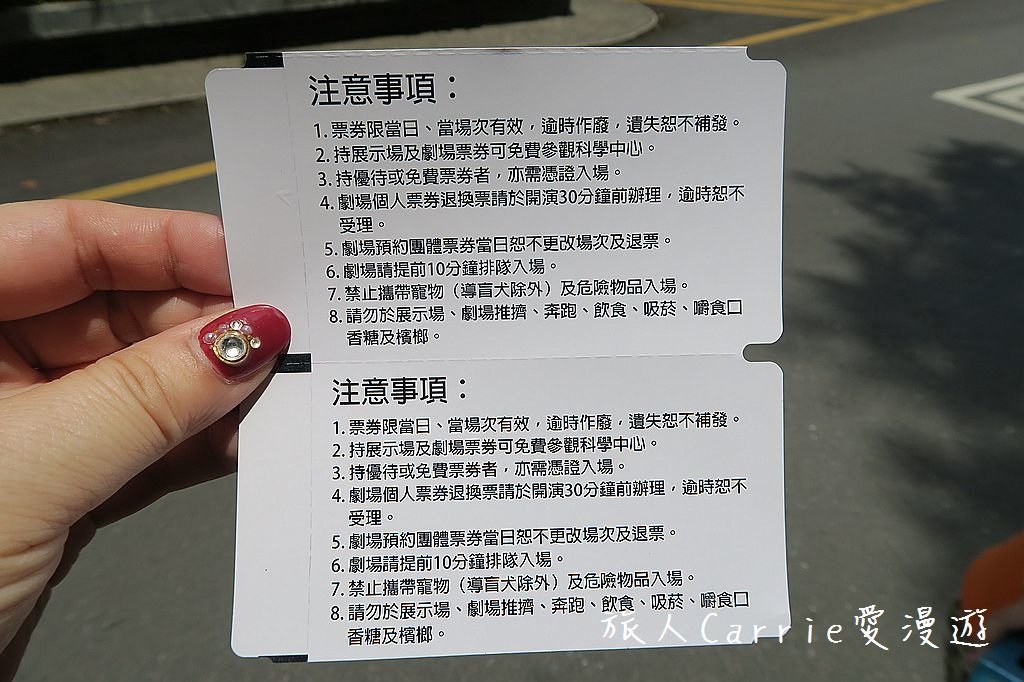 注意事項：
1. 票券限當日、當場次有效，逾時作廢，遺失恕不補發。
2. 持展示場及劇場票券可免費參觀科學中心。
3. 持優待或免費票券者，亦需憑證入場。
4. 劇場個人票券退換票請於開演30分鐘前辦理，逾時恕不
受理。
5. 劇場預約團體票券當日恕不更改場次及退票。
6. 劇場請提前10分鐘排隊入場。
7. 禁止攜帶寵物（導盲犬除外）及危險物品入場。
8. 請勿於展示場、劇場推擠、奔跑、飲食、吸菸、嚼食口
香糖及檳榔。
注意事項：
1. 票券限當日、當場次有效，逾時作廢，遺失恕不補發。
2. 持展示場及劇場票券可免費參觀科學中心。
3. 持優待或免費票券者，亦需憑證入場。
4. 劇場個人票券退換票請於開演30分鐘前辦理，逾時恕不
受理。
5. 劇場預約團體票券當日恕不更改場次及退票。
6. 劇場請提前10分鐘排隊入場。
7. 禁止攜帶寵物（導盲犬除外）及危險物品入場。
8. 請勿於展示場、劇場推擠、奔跑、飲食、吸菸、嚼食口
香糖及檳榔。
旅人Carrie愛漫遊